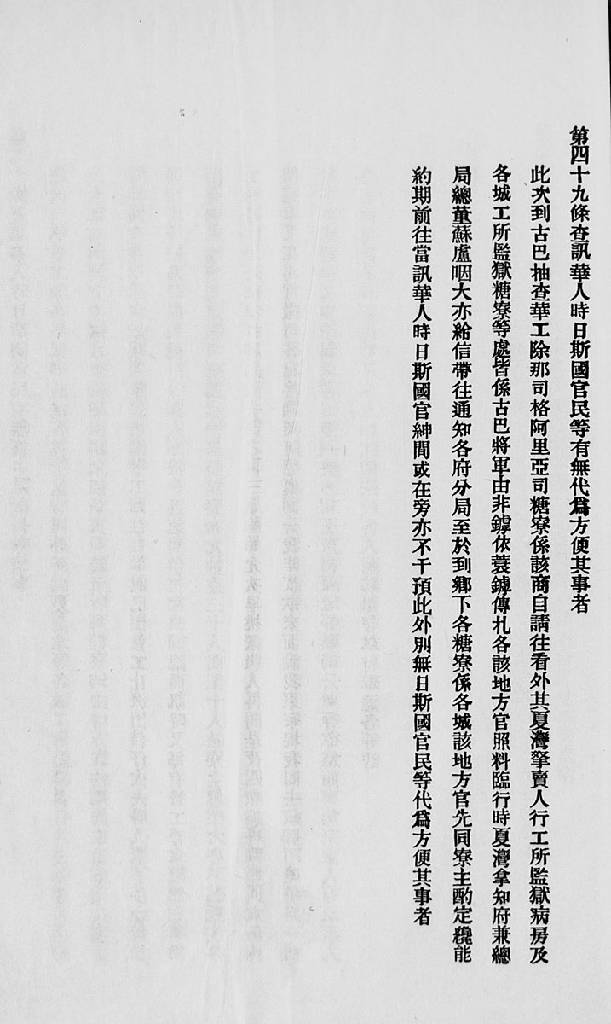 第四十九條查訊華人時日斯國官民等有無代爲方便其事者
此次到古巴抽查華工除那司格阿里亞司糖寮係該商自請往看外其夏灣拏賣人行工所監獄病房及
各城工所監獄糖寮等處皆係古巴將軍由非鎼依蓑鎼傳札各該地方官照料臨行時夏灣拿知府兼總
局總董蘇盧咽大亦給信帶往通知各府分局至於到鄉下各糖寮係各城該地方官先同寮主酌定纔能
約期前往當訊華人時日斯國官紳間或在旁亦不干預此外別無日斯國官民等代爲方便其事者